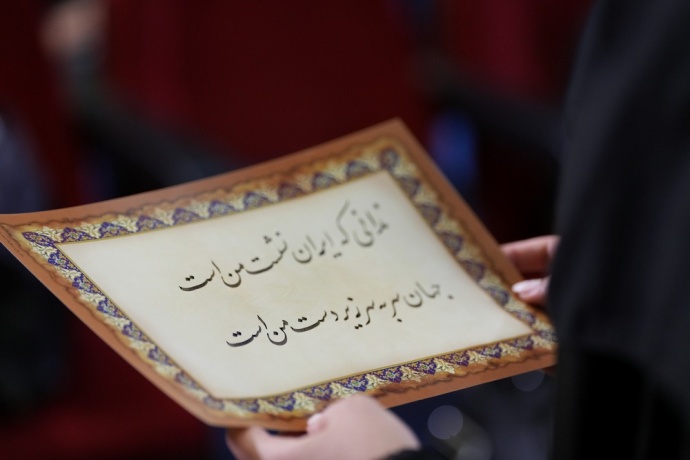 ندانی که ایران نشست من است
جهان سر به سر زیر دست من است